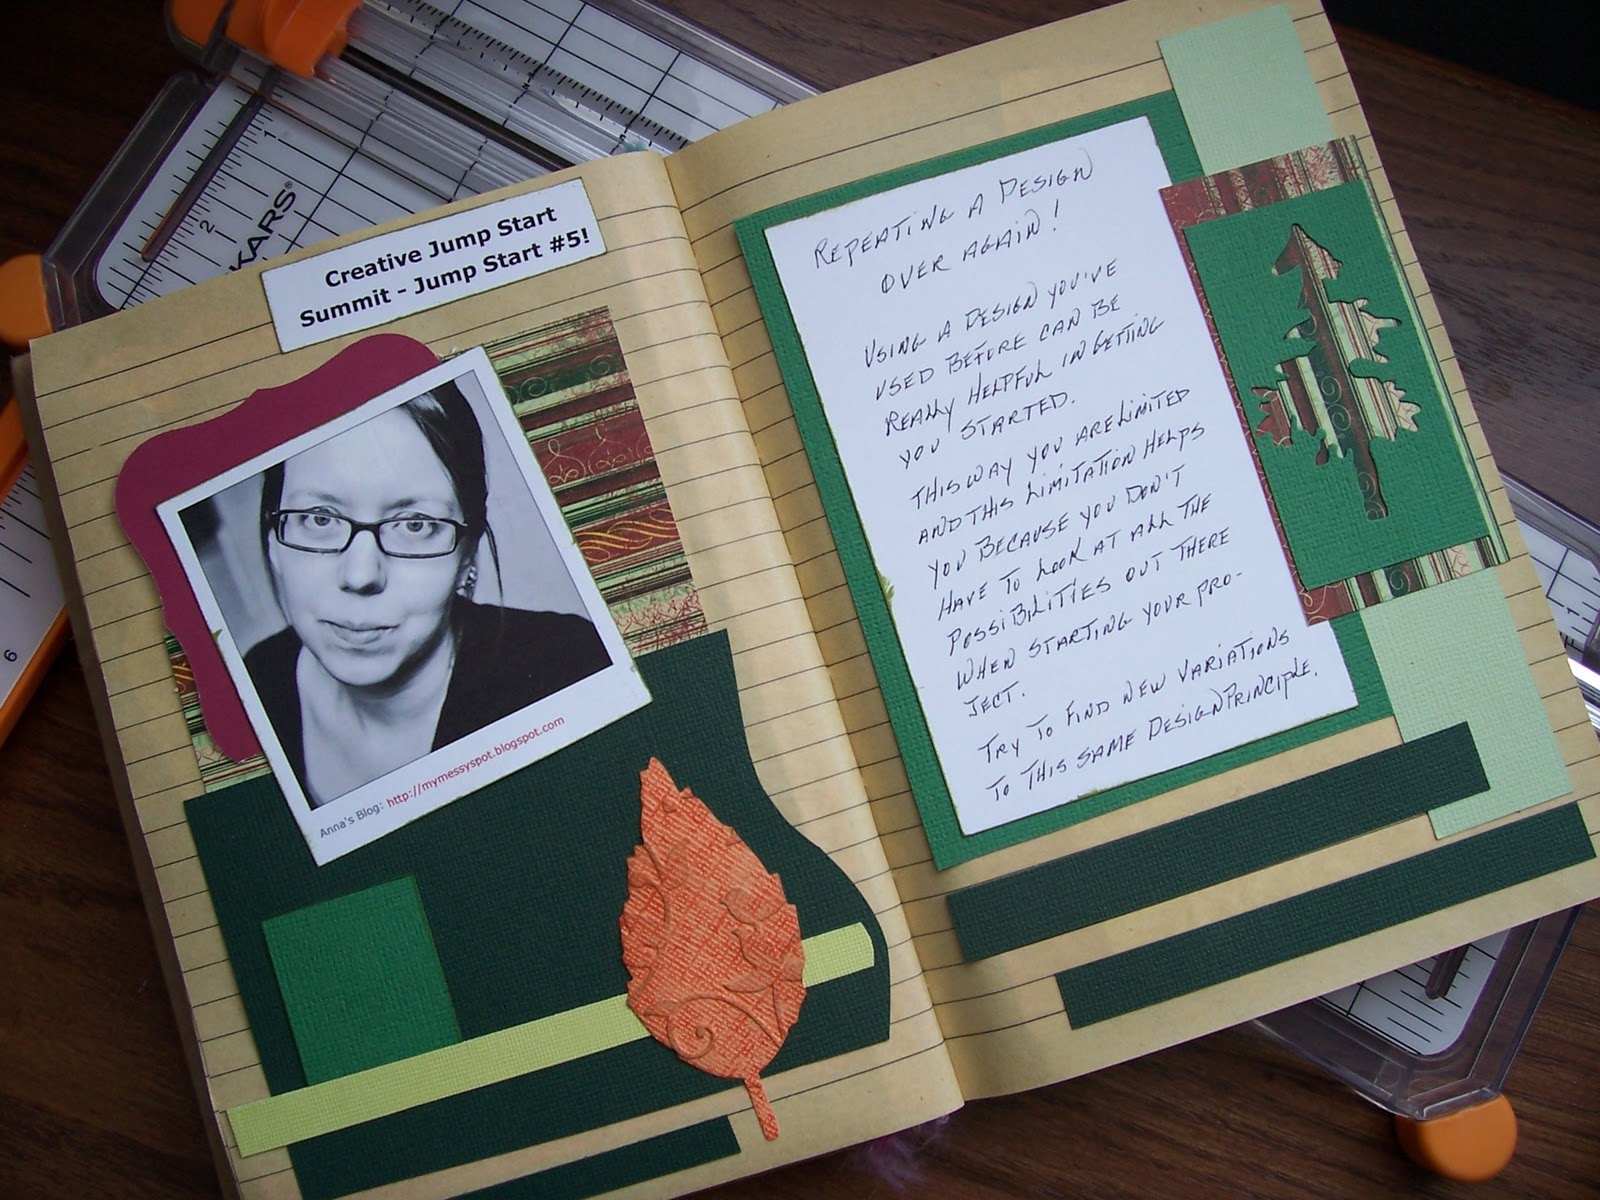 KARS®
1
2
6
Creative Jump Start
Summit - Jump Start #5!
Anna's Blog: http://mymessyspot.blogspot.com
REPEATING A DESIGN
OVER AGAIN!
USING A DESIGN YOU'VE
USED BEFORE CAN BE
REALLY HELPFUL IN GETTING
YOU STARTED.
THIS WAY YOU ARE LIMITED
AND THIS LIMITATION HELPS
YOU BECAUSE YOU DON'T
HAVE TO LOOK AT ALL THE
POSSIBILITIES OUT THERE
WHEN STARTING YOUR PRO-
JECT.
TRY TO FIND NEW VARIATIONS
TO THIS SAME DESIGN PRINCIPLE.
1